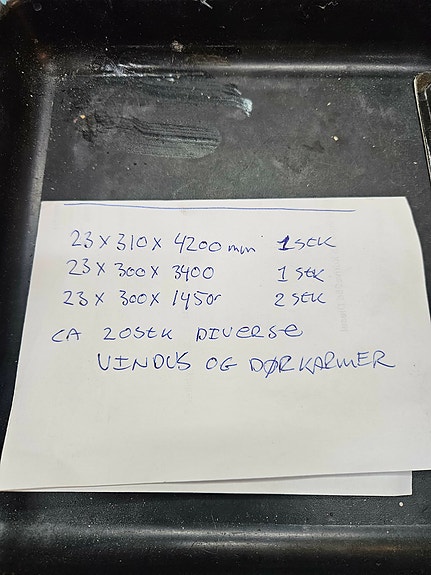 23 x 310 x 4200 mm 1 STK
23 x 300 x 3400 1 STK
23 x 300 x 1450 2 STK
CA 20STK DIVERSE
VINDUS OG DØRKARMER